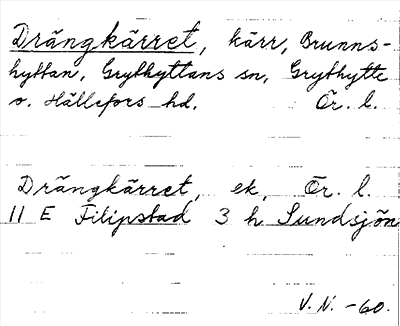 Drängkärret, kärr, Brunns-
hyttan, Grythyttans sn, Grythytte
o. Hällefors hd. Ör. l.
Drängkärret, ek, Ör. l.
11 E Filipstad 3 h Sundsjön
V. N. -60.